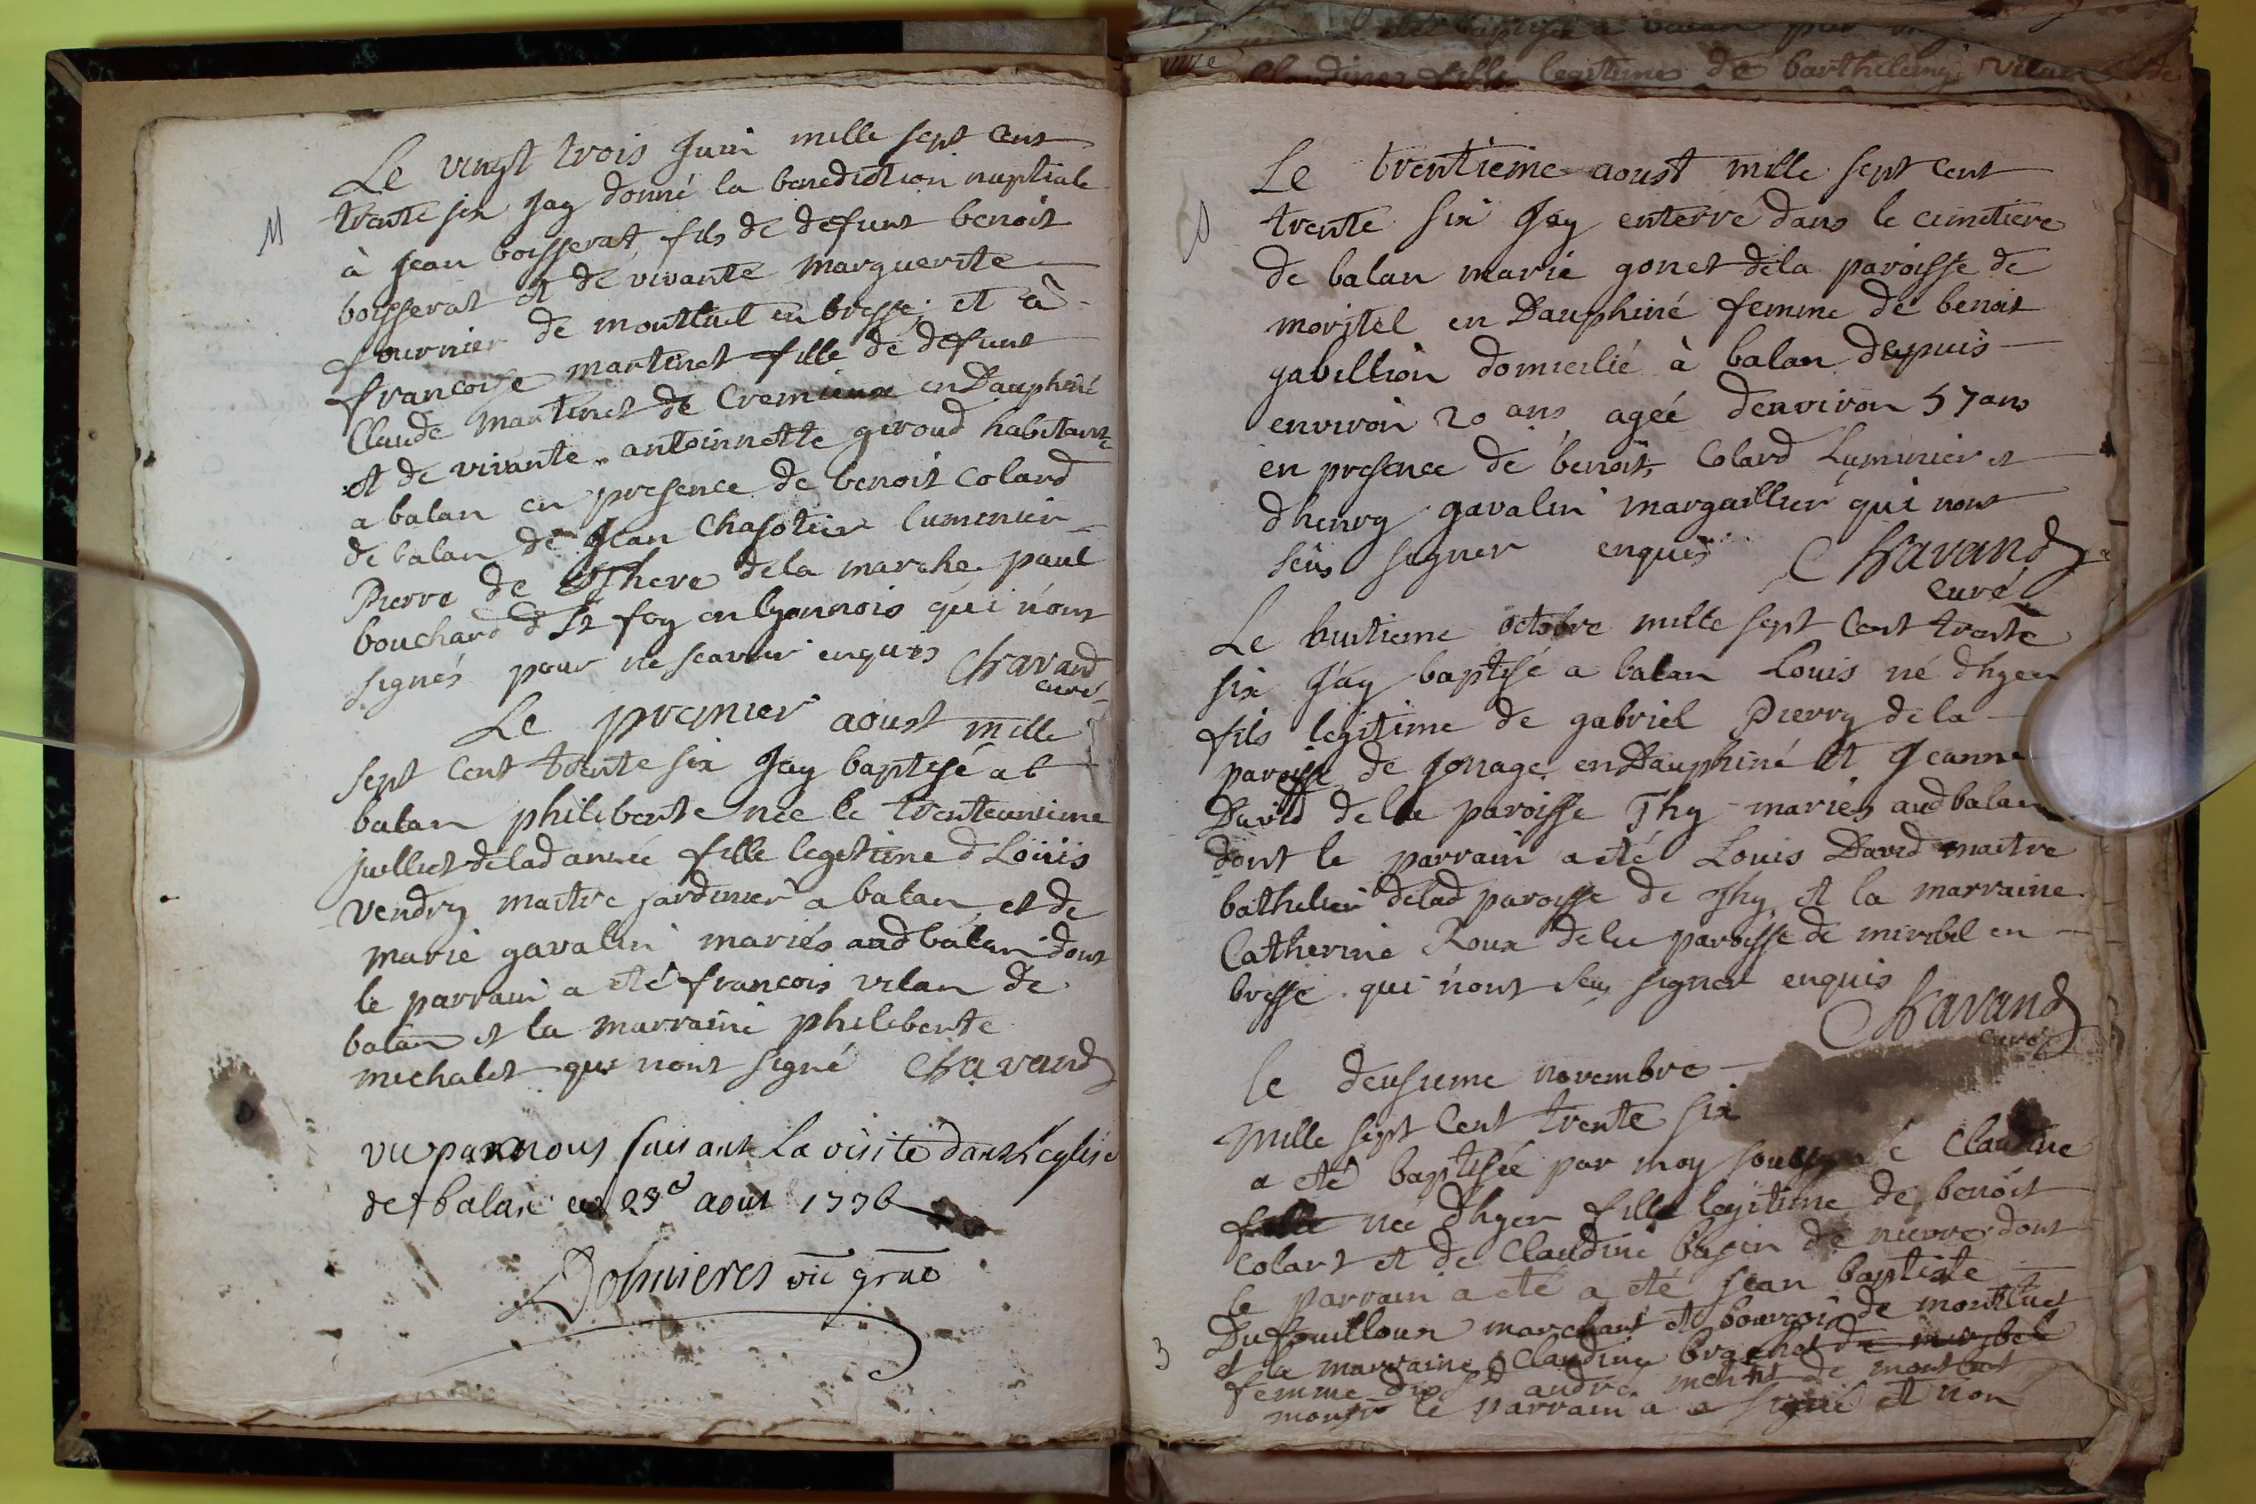 M
Le vingt trois Juin mille sept cent
trente six Jay donné la benediction nuptiale
à Jean boisserat fils de defunt benoit
boisserat et de vivante marguerite
fournier de montluel en bresse, et à
francoise martinet fille de defunt
Claude martinet de Cremieux en Dauphiné
et de vivante antoinnette giroud habitante
a balan en presence de benoit Colard
de balan de Jean Chasotier lumenier
Pierre de dela marche paul
bouchard de St foy en lyonnois qui nont
signés pour ne scavoir enquis Chavand
curé
Le premier aoust mille
sept cent trente six Jay baptisé a
balan philiberte née le trenteunieme
juillet delad année fille legitime d Loüis
vendry maitre jardinier a balan et de
marie gavalin mariés aud balan dont
le parrain a eté francois vilan de
balan et la marraine philiberte
michalet qui nont signé Chavand
vu par nous suivant La visite dans L'eglise
de balan ce 23e aout 1736
vic gnal
Le trentieme aoust mille sept cent
trente six Jay enterré dans le cimetiere
de balan marie gonet dela paroisse de
moritel en Dauphiné femme de benoit
gabillion domicilié à balan depuis
environ 20 ans agée denviron 57 ans
en presence de benoit Colard Luminier et
dhenry gavalin marguillier qui nont
seus signer enquis Chavand
curé
Le huitieme octobre mille sept cent trente
six Jay baptisé a balan Louis né dhyer
fils legitime de gabriel Pierry dela
paroisse de Jonage en Dauphiné et Jeanne
David dela paroisse Thy mariés aud balan
dont le parrain a eté Louis David maitre
bathelier delad paroisse de Thy et la marraine
Catherine Roux dela paroisse de miribel en
bresse qui nont seus signer enquis
Chavand
curé
le deusieme novembre
mille sept Cent trente six
a eté baptisée par moy soussigné Claudine
née dhyer fille legitime de benoit
colart et de Claudine bazin de nievre dont
le parrain a eté a eté jean baptiste
Dufouilloux marchant et bourgois de montluel
3
et la marraine Claudine brochot de miribel
femme du Sr andré de montluel
le parrain a signé et non